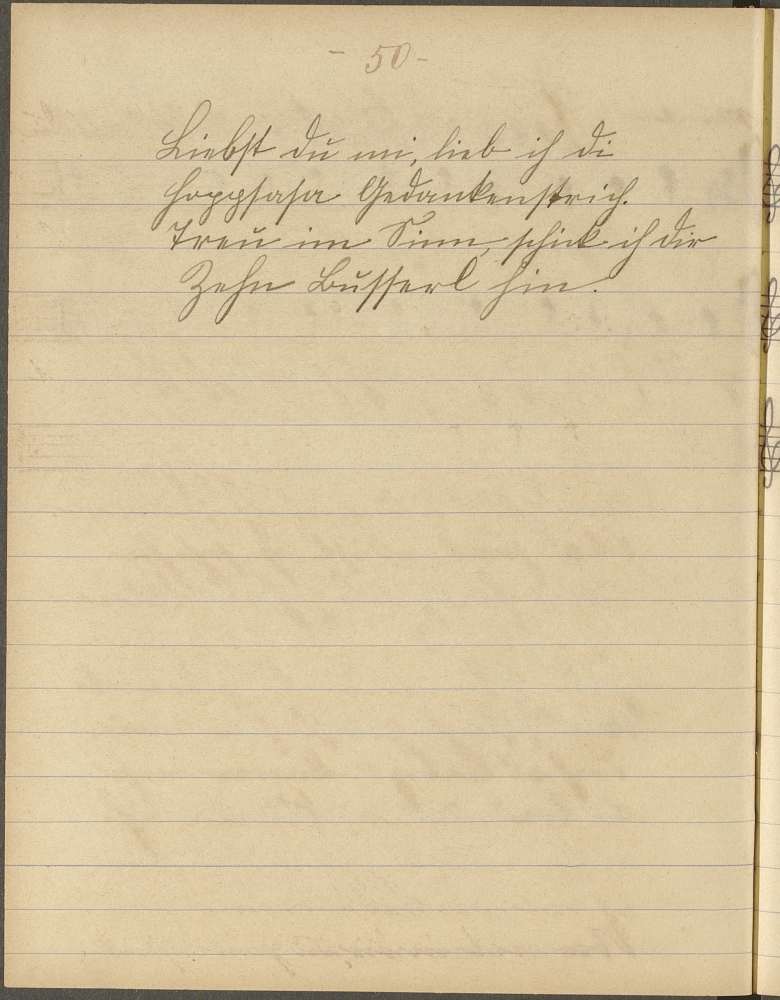 - 50 -
Liebst du mi, lieb ich di
hoppsasa Gedankenstrich.
Treu im Sinn, schick ich dir
Zehn Busserl hin.